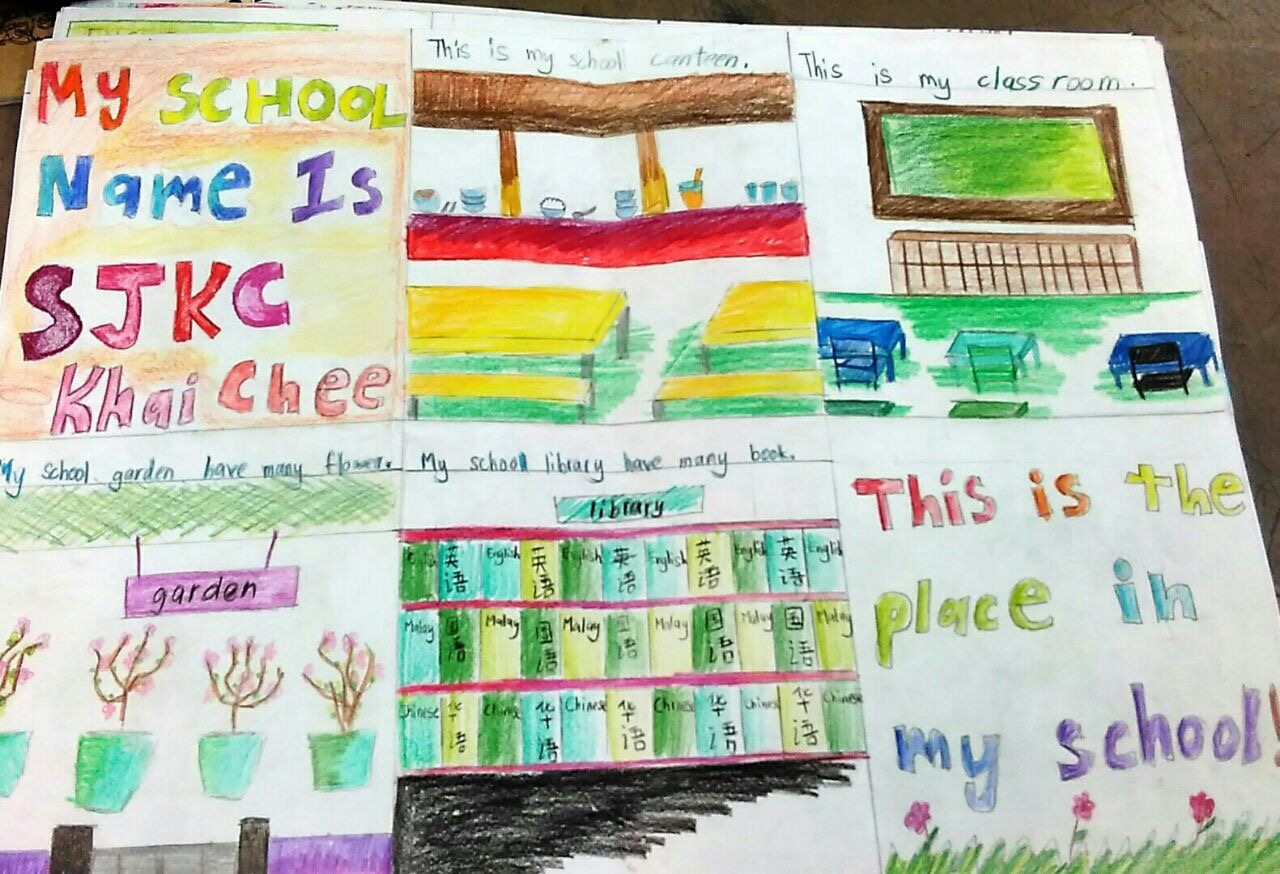 My SCHOOL
Name Is
SJKC
Khai Chee
This is my school canteen.
This is my class room.
My school garden have many flower.
garden
My school library have many book.
library
English 英语 English 英语 English 英语 English 英语 English 英语 English
Malay 国语 Malay 国语 Malay 国语 Malay 国语 Malay 国语 Malay
Chinese 华语 Chinese 华语 Chinese 华语 Chinese 华语 Chinese 华语 Chinese
This is the
place in
my school!